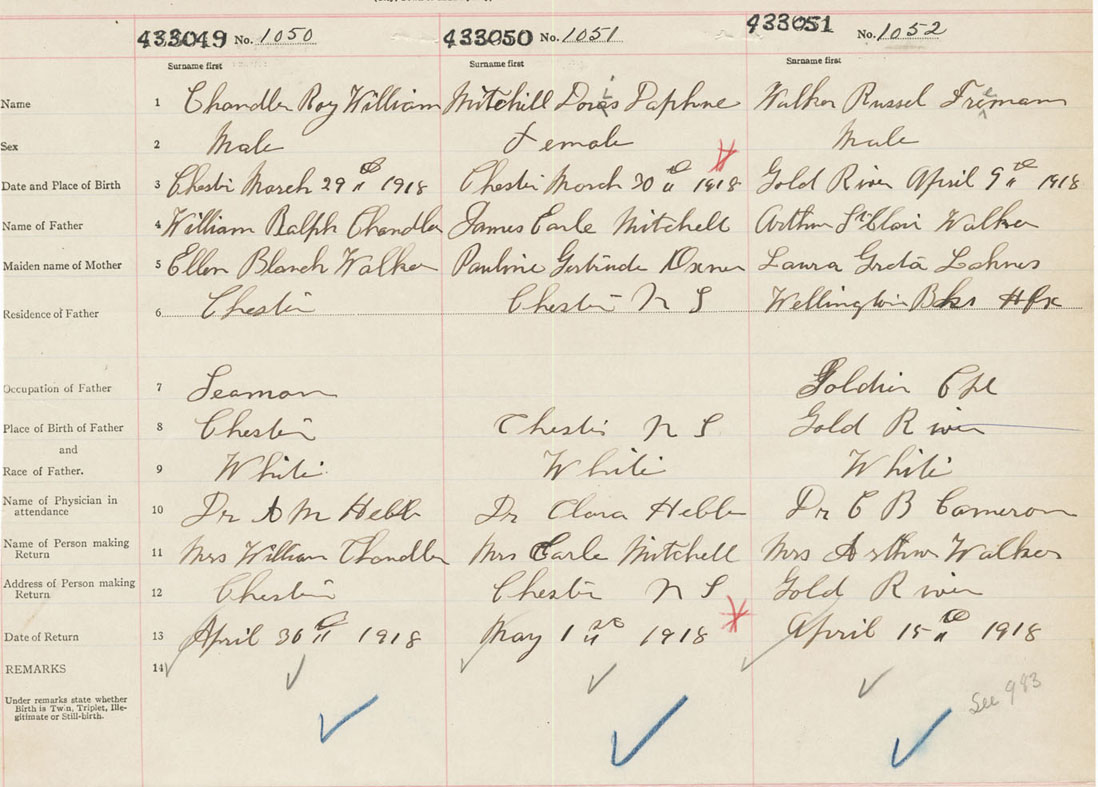 433049 No. 1050 433050 No. 1051 433051 No. 1052
Surname first Surname first Surname first
Name 1 Chandler Roy William Mitchill Doris Daphne Walker Russel Freman
Sex 2 Male Female Male
Date and Place of Birth 3 Chester March 29th 1918 Chester March 30th 1918 Gold River April 9th 1918
Name of Father 4 William Ralph Chandler James Earle Mitchell Arthur St Clair Walker
Maiden name of Mother 5 Ellen Blanch Walker Pauline Gertrude Oxner Laura Greta Lohnes
Residence of Father 6 Chester Chester N S Wellington Bks Hfx
Occupation of Father 7 Seaman Soldier Cpl
Place of Birth of Father 8 Chester Chester N S Gold River
and
Race of Father. 9 White White White
Name of Physician in attendance 10 Dr A M Hebb Dr Clara Hebb Dr C B Cameron
Name of Person making Return 11 Mrs William Chandler Mrs Earle Mitchell Mrs Arthur Walker
Address of Person making Return 12 Chester Chester N S Gold River
Date of Return 13 April 30th 1918 May 1st 1918 April 15th 1918
REMARKS 14
See 983
Under remarks state whether
Birth is Twin, Triplet, Ille-
gitimate or Still-birth.